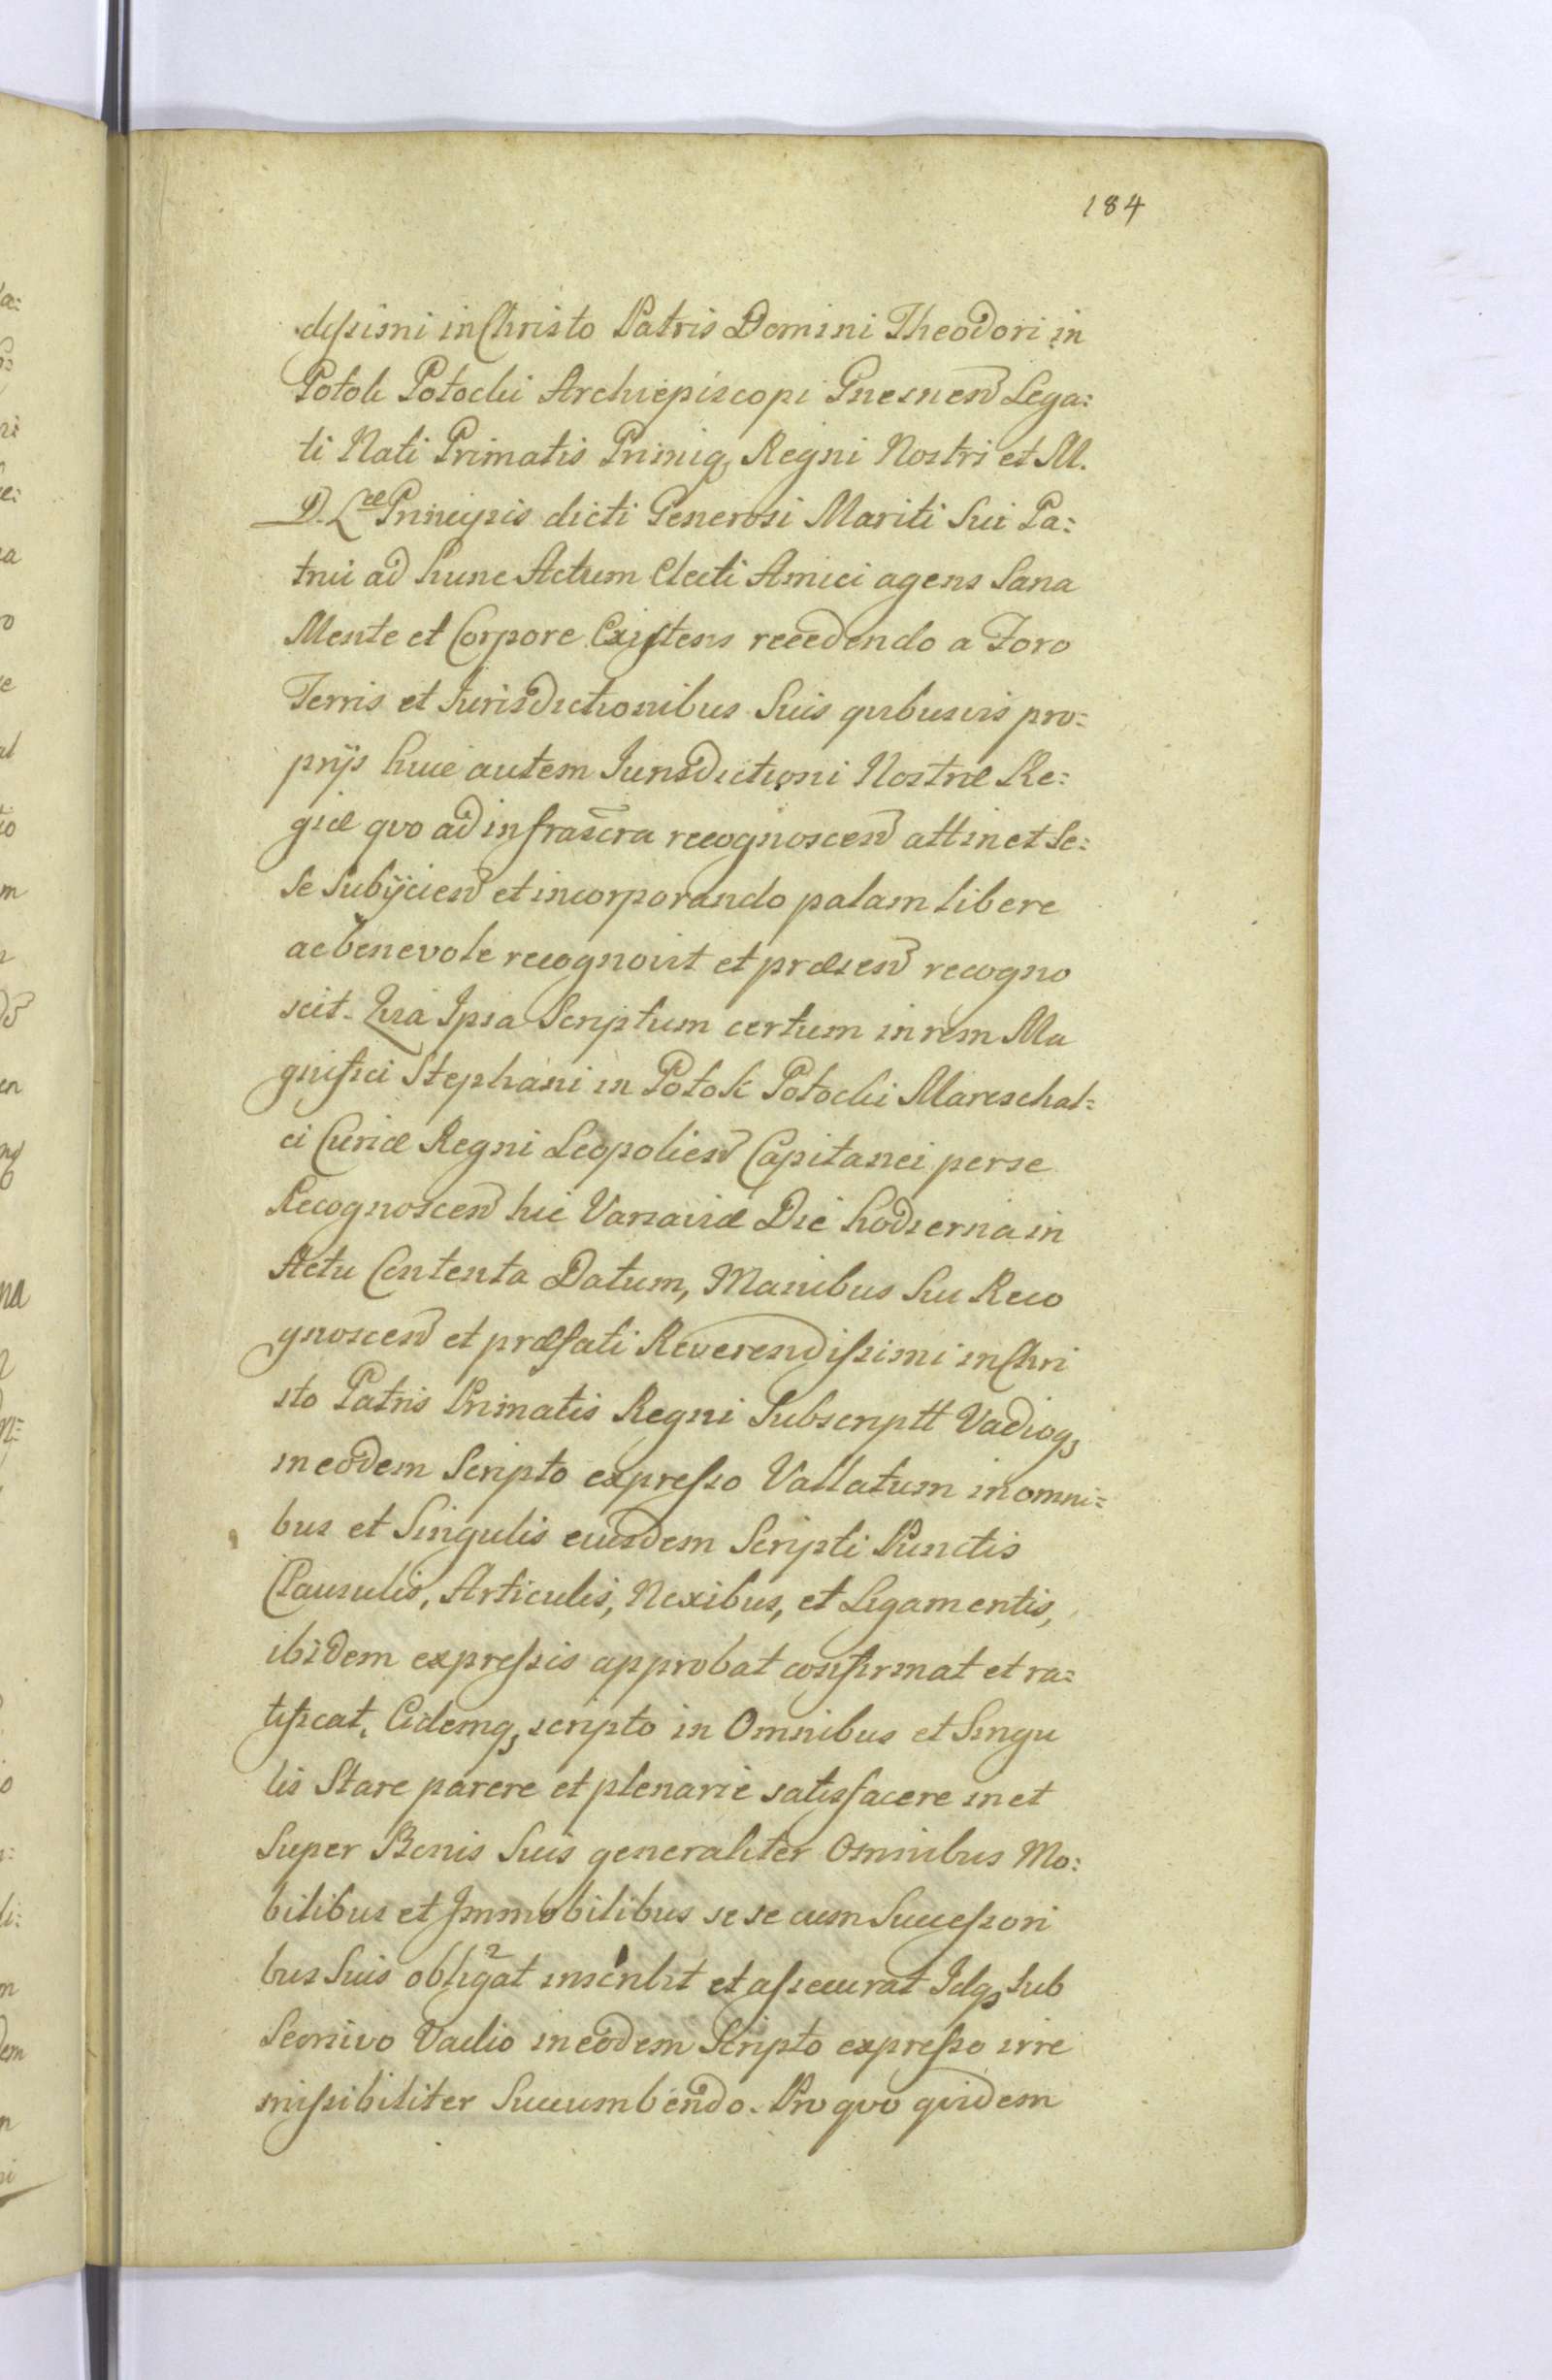 184
dissimi in Christo Patris Domini Theodori in
Potok Potocki Archiepiscopi Gnesnen Lega:
ti Nati Primatis Primiq, Regni Nostri et M.
D. Læ Principis dicti Generosi Mariti Sui Pa:
trui ad hunc Actum Electi Amici agens Sana
Mente et Corpore Existens recedendo a Foro
Terris et Jurisdictionibus Suis quibusvis pro:
prijs huic autem Jurisdictioni Nostræ Re:
giæ quo ad infrascra recognoscen attinet Se:
se Subijcien et incorporando palam libere
ac benevole recognovit et præsen recogno
scit. Quia Ipsa Scriptum certum in rem Ma
gnifici Stephani in Potok Potocki Mareschal:
ci Curiæ Regni Leopolien Capitanei per se
Recognoscen hic Varsaviæ Die hodierna in
Actu Contenta Datum, Manibus Sui Reco
gnoscen et præfati Reverendissimi in Chri
sto Patris Primatis Regni Subscriptt Vadioq,
in eodem Scripto expresso Vallatum in omni:
bus et Singulis eiusdem Scripti Punctis
Clausulis, Articulis, Nexibus, et Ligamentis,
ibidem expressis approbat confirmat et ra:
tificat, Eidemq, scripto in Omnibus et Singu
lis Stare parere et plenarie satisfacere in et
Super Bonis Suis generaliter Omnibus Mo:
bilibus et Immobilibus se se cum Successori
bus Suis obligat inscribit et assecurat Idq, Sub
Seorsivo Vadio in eodem Scripto expresso irre
missibiliter Succumbendo. Pro quo quidem